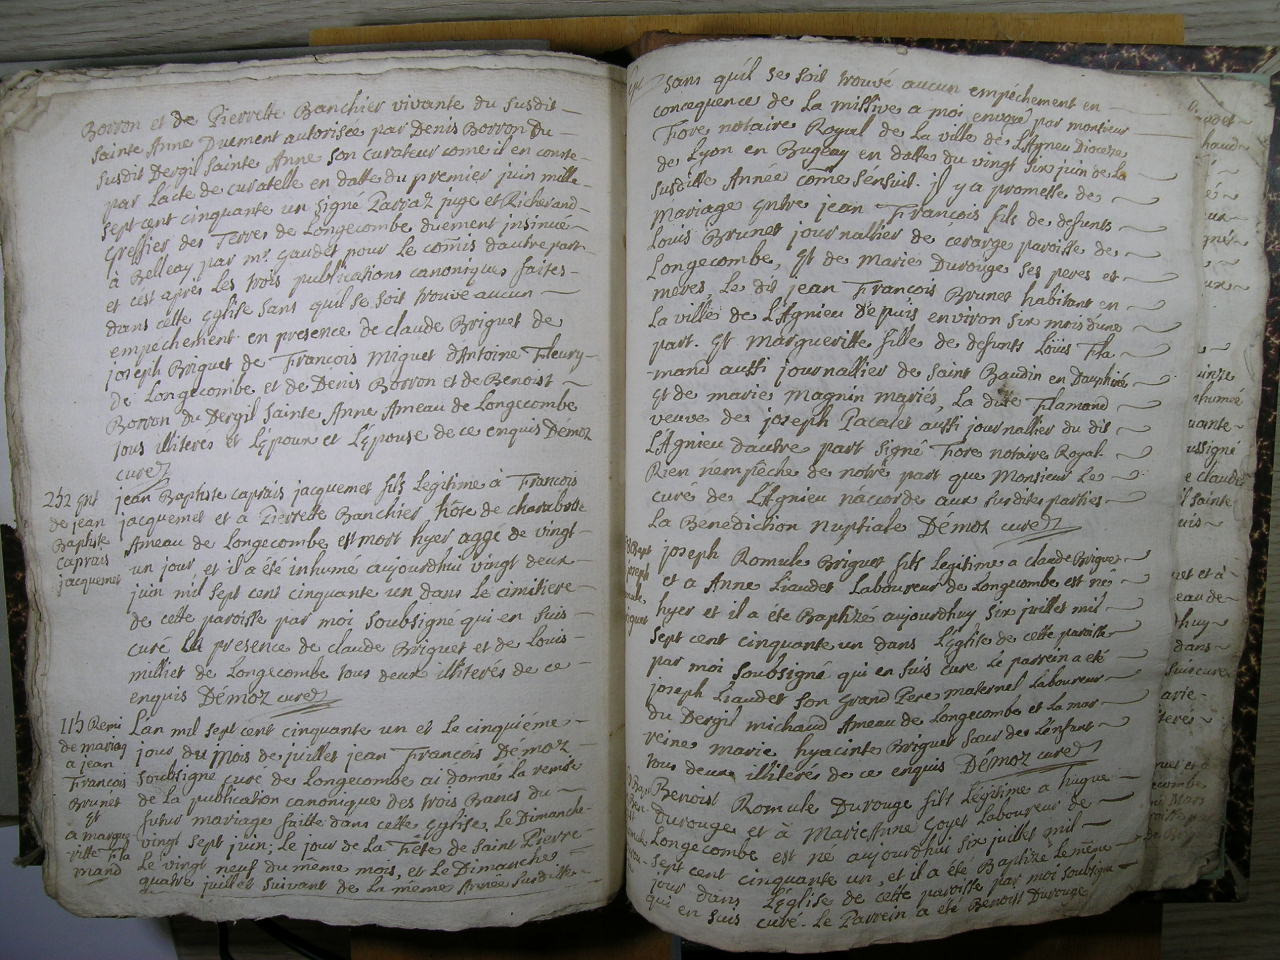 Borron et de Pierrette Banchier vivante du susdit
Sainte Anne Duement autorisée par Denis Borron Du
susdit Dergil Sainte Anne son curateur come il en conste
par L'acte de curatelle en datte du premier juin mille
sept cent cinquante un signé Parraz juge et Richerand
greffier des Terres de Longecombe duement insinué
à Belleay par mr. gaudet pour Le com̃is d'autre part
et c'est après Les trois publications canoniques faites
dans cette Eglise sans quil se soit trouvé aucun
empechement. en presence de claude Briguet de
joseph Briguet de François Miguet d'Antoine Fleury
de Longecombe et de Denis Borron et de Benoist
Borron du Dergil Sainte Anne Ameau de Longecombe
tous illiteres et L'époux et L'épouse de ce enquis Démoz
curé
2d2 Ent
de jean
Baptiste
caprais
jacquemet
jean Baptiste caprais jacquemet fils Légitime à François
jacquemet et à Pierrette Banchier hôte de charabotte
Ameau de Longecombe est mort hyer aggé de vingt
un jour et il a été inhumé aujourdhui vingt deux
juin mil sept cent cinquante un dans Le cimitiere
de cette paroisse par moi soubsigné qui en suis
curé La presence de claude Briguet et de Louis
milliet de Longecombe tous deux illiterés de ce
enquis Démoz curé
Remi
de mariag
a jean
François
Brunet
Et
a margue
ritte Fila
mand
L'an mil sept cent cinquante un et Le cinquiéme
jour du mois de juillet jean François Démoz
soubsigné curé de Longecombe ai donné La remise
de La publication canonique des trois Bancs du
futur mariage faitte dans cette Eglise. Le Dimanche
vingt sept juin; Le jour de La Fête de Saint Pierre
Le vingt neuf du même mois, et Le Dimanche
quatre juillet suivant de La meme Année susditte
sans qu'il se soit trouvé aucun empéchement en
consequence de La missive a moi envoyé par monsieur
Fiore notaire Royal de La ville de L'Agnieu Diocese
de Lyon en Bugeay en datte du vingt six juin de La
susditte Année com̃e sensuit. il y a promesse de
mariage Entre jean François fils de defunts
Louis Brunet journallier de cerarge paroisse de
Longecombe, Et de Marie Durouge ses peres et
meres, Le dit jean François Brunet habitant en
La ville de L'Agnieu Depuis environ six mois d'une
part. Et Margueritte fille de defunts Loüis Fila
mand aussi journallier de Saint Baudin en Dauphiné
Et de marie Magnin mariés, La dite Filamand
veuve de joseph Pacalet aussi journallier du dit
L'Agnieu d'autre part signé Fiore notaire Royal
Rien n'empêche de notre part que Monsieur Le
curé de L'Agnieu n'accorde aux susdites parties
La Benediction Nuptiale Démoz curé
joseph Romule Briguet fils Legitime a claude Briguet
et a Anne Liaudet Laboureur de Longecombe est né
hyer et il a été Baptizé aujourdhuy six juillet mil
sept cent cinquante un dans L'église de cette paroisse
par moi soubsigné qui en suis curé Le parrein a été
joseph Liaudet son Grand Pere maternel Laboureur
du Dergil michaud Ameau de Longecombe et La mar
reine Marie hyacinte Briguet sœur de L'enfant
tous deux illiterés de ce enquis Démoz curé
Benoist Romule Durouge fils Légitime a hugue
Durouge et à Marie Anne Goyet Laboureur de
Longecombe est né aujourdhui six juillet mil
sept cent cinquante un, et il a été Baptizé Le même
jour dans L'église de cette paroisse par moi soubsigné
qui en suis curé. Le Parrein a été Benoist Durouge